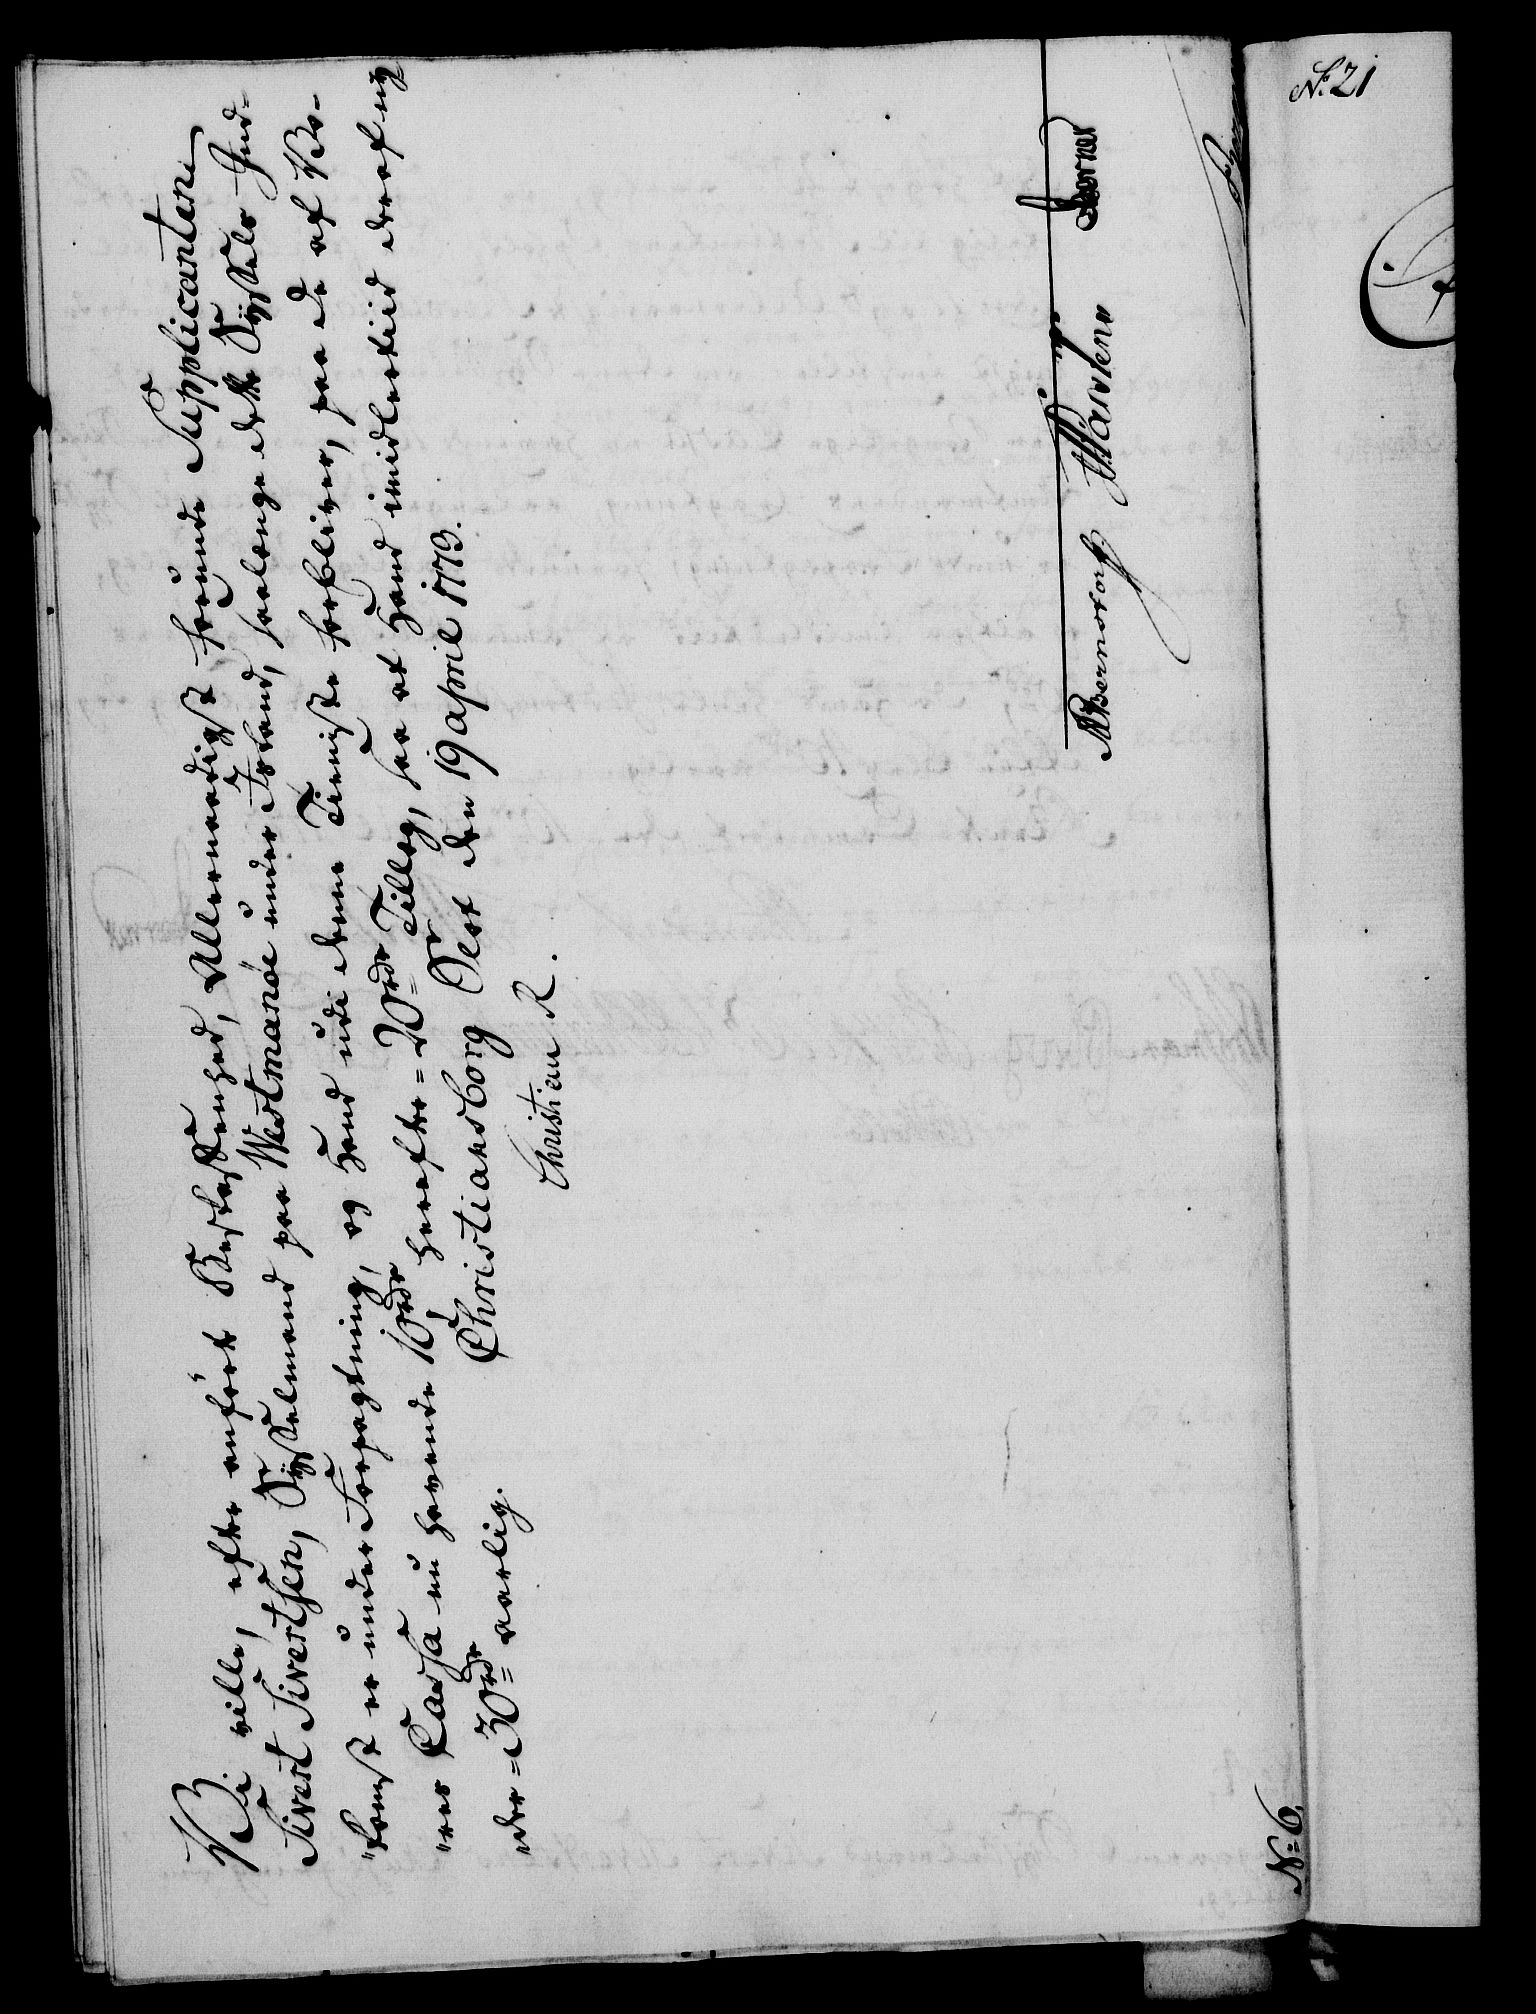 Vi ville, efter anförte Beskaffenhed, Allernaadigst forunde Supplicanten
Sivert Sivertsen, Sysselmand paa Westmanöe under Island, saalænge dette Syssels Ind-
"komst er under Forpagtning, og Hand udi denne Tieniste forbliver, paa de af Vo-
"res Cassa nu havende 10rdr, herefter = 20rdr Tillæg, saa at Hand imidlertiid deraf nÿ
der = 30rdr aarlig. Christiansborg Slot den 19 april 1773.
Christian R.
ABernstorff WJÖrtzen
No 6.
No 21